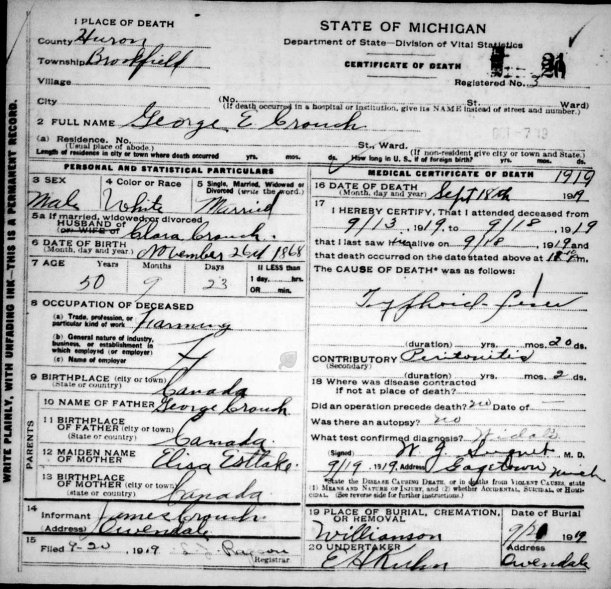 1 PLACE OF DEATH
STATE OF MICHIGAN
County Huron
Department of State—Division of Vital Statistics
Township Brookfield
CERTIFICATE OF DEATH
Village
Registered No. 3
City
(No. St. Ward)
(If death occurred in a hospital or institution, give its NAME instead of street and number.)
2 FULL NAME George E Crouch
(a) Residence. No. St., Ward.
(Usual place of abode.) (If non-resident give city or town and State.)
Length of residence in city or town where death occurred yrs. mos. ds. How long in U. S., if of foreign birth? yrs. mos. ds.
WRITE PLAINLY, WITH UNFADING INK—THIS IS A PERMANENT RECORD.
PERSONAL AND STATISTICAL PARTICULARS
3 SEX
Male
4 Color or Race
White
5 Single, Married, Widowed or Divorced (write the word.)
Married
5a If married, widowed or divorced
HUSBAND of
or WIFE of Clara Crouch
6 DATE OF BIRTH
(Month, day and year) November 26th 1868
7 AGE Years Months Days If LESS than
1 day, hrs.
OR min.
50 9 23
8 OCCUPATION OF DECEASED
(a) Trade, profession, or particular kind of work Farming
(b) General nature of industry, business, or establishment in which employed (or employer)
(c) Name of employer
9 BIRTHPLACE (city or town)
(State or country) Canada
PARENTS
10 NAME OF FATHER George Crouch
11 BIRTHPLACE OF FATHER (city or town)
(State or country) Canada
12 MAIDEN NAME OF MOTHER Elisa Estlake
13 BIRTHPLACE OF MOTHER (city or town)
(state or country) Canada
14
Informant James Crouch
(Address) Owendale
15
Filed 9-20, 1919
Registrar
MEDICAL CERTIFICATE OF DEATH
1919
16 DATE OF DEATH
(Month, day and year) Sept 18th 1919
17
I HEREBY CERTIFY, That I attended deceased from
9/13, 1919, to 9/18, 1919
that I last saw him alive on 9/18, 1919 and
that death occurred on the date stated above at m.
The CAUSE OF DEATH* was as follows:
Typhoid fever
(duration) yrs. mos. 20 ds.
CONTRIBUTORY Peritonitis
(Secondary)
(duration) yrs. mos. 2 ds.
18 Where was disease contracted
if not at place of death?
Did an operation precede death? no Date of
Was there an autopsy? no
What test confirmed diagnosis? Widal
(Signed) M. D.
9/19, 1919 Address Gagetown Mich
*State the DISEASE CAUSING DEATH, or in deaths from VIOLENT CAUSES, state (1) MEANS AND NATURE OF INJURY, and (2) whether ACCIDENTAL, SUICIDAL, or HOMICIDAL. (See reverse side for further instructions.)
19 PLACE OF BURIAL, CREMATION, OR REMOVAL
Date of Burial
Williamson 1919
20 UNDERTAKER
Address
Owendale